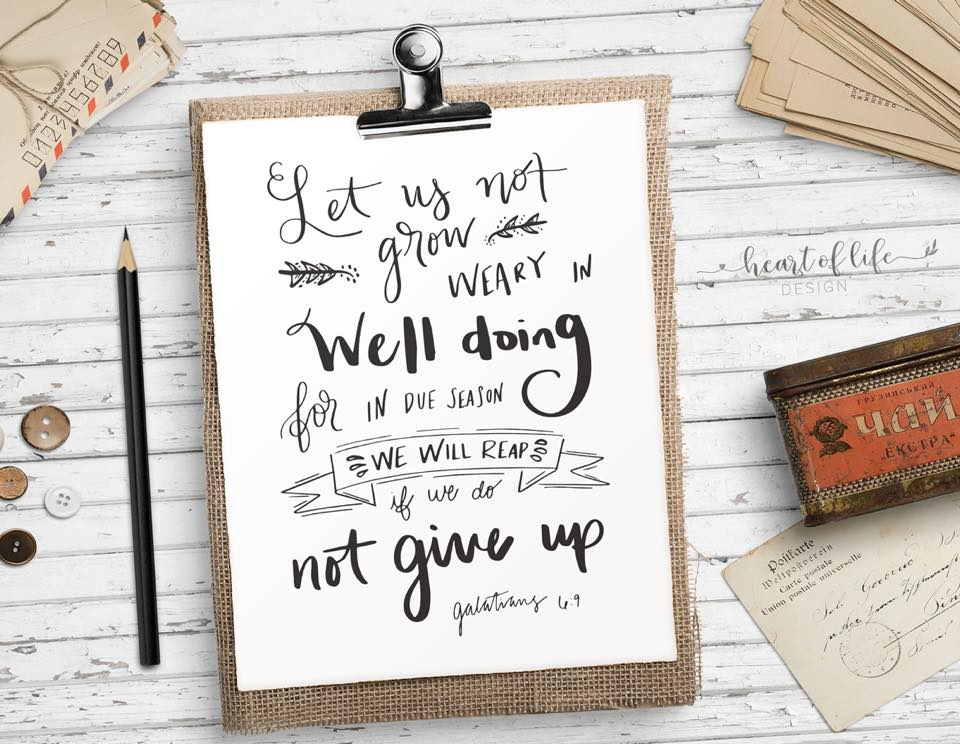 Let us not
grow
WEARY IN
Well doing
for IN DUE SEASON
WE WILL REAP
if we do
not give up
galatians 6:9
heart of life
DESIGN
0123456789
ГРУЗИНСЬКИЙ
ЧАЙ
„ЕКСТРА"
Postkarte
Weltpostverein
Carte postale
Union postale universelle